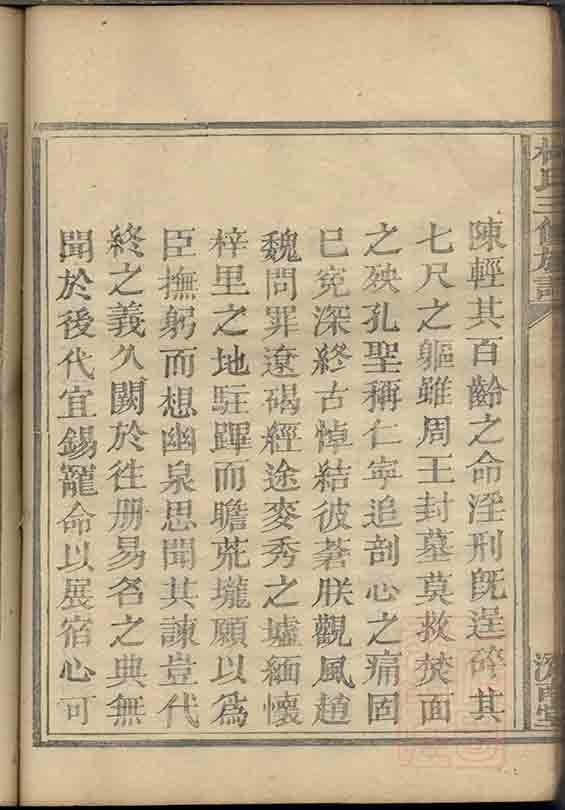 林氏三修族譜
陳輕其百齡之命淫刑旣逞碎其
七尺之軀雖周王封墓莫救焚面
之殃孔聖稱仁寧追剖心之痛固
已寃深終古悼結彼蒼朕觀風趙
魏問罪遼碣經途麥秀之墟緬懷
梓里之地駐蹕而瞻荒壠願以爲
臣撫躬而想幽泉思聞其諫豈代
終之義久闕於往册易名之典無
聞於後代宜錫寵命以展宿心可